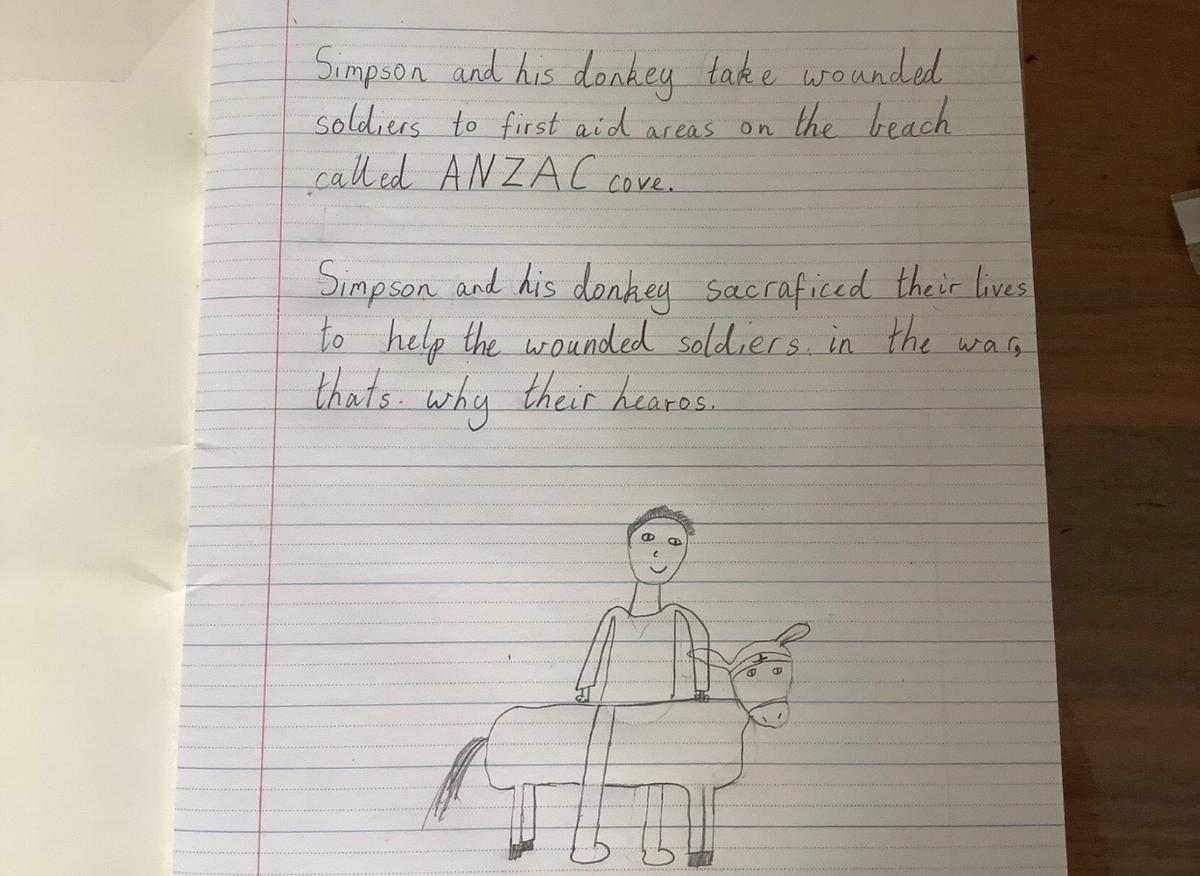 Simpson and his donkey take wounded
soldiers to first aid areas on the beach
called ANZAC cove.
Simpson and his donkey sacraficed their lives
to help the wounded soldiers. in the war,
thats. why their hearos.